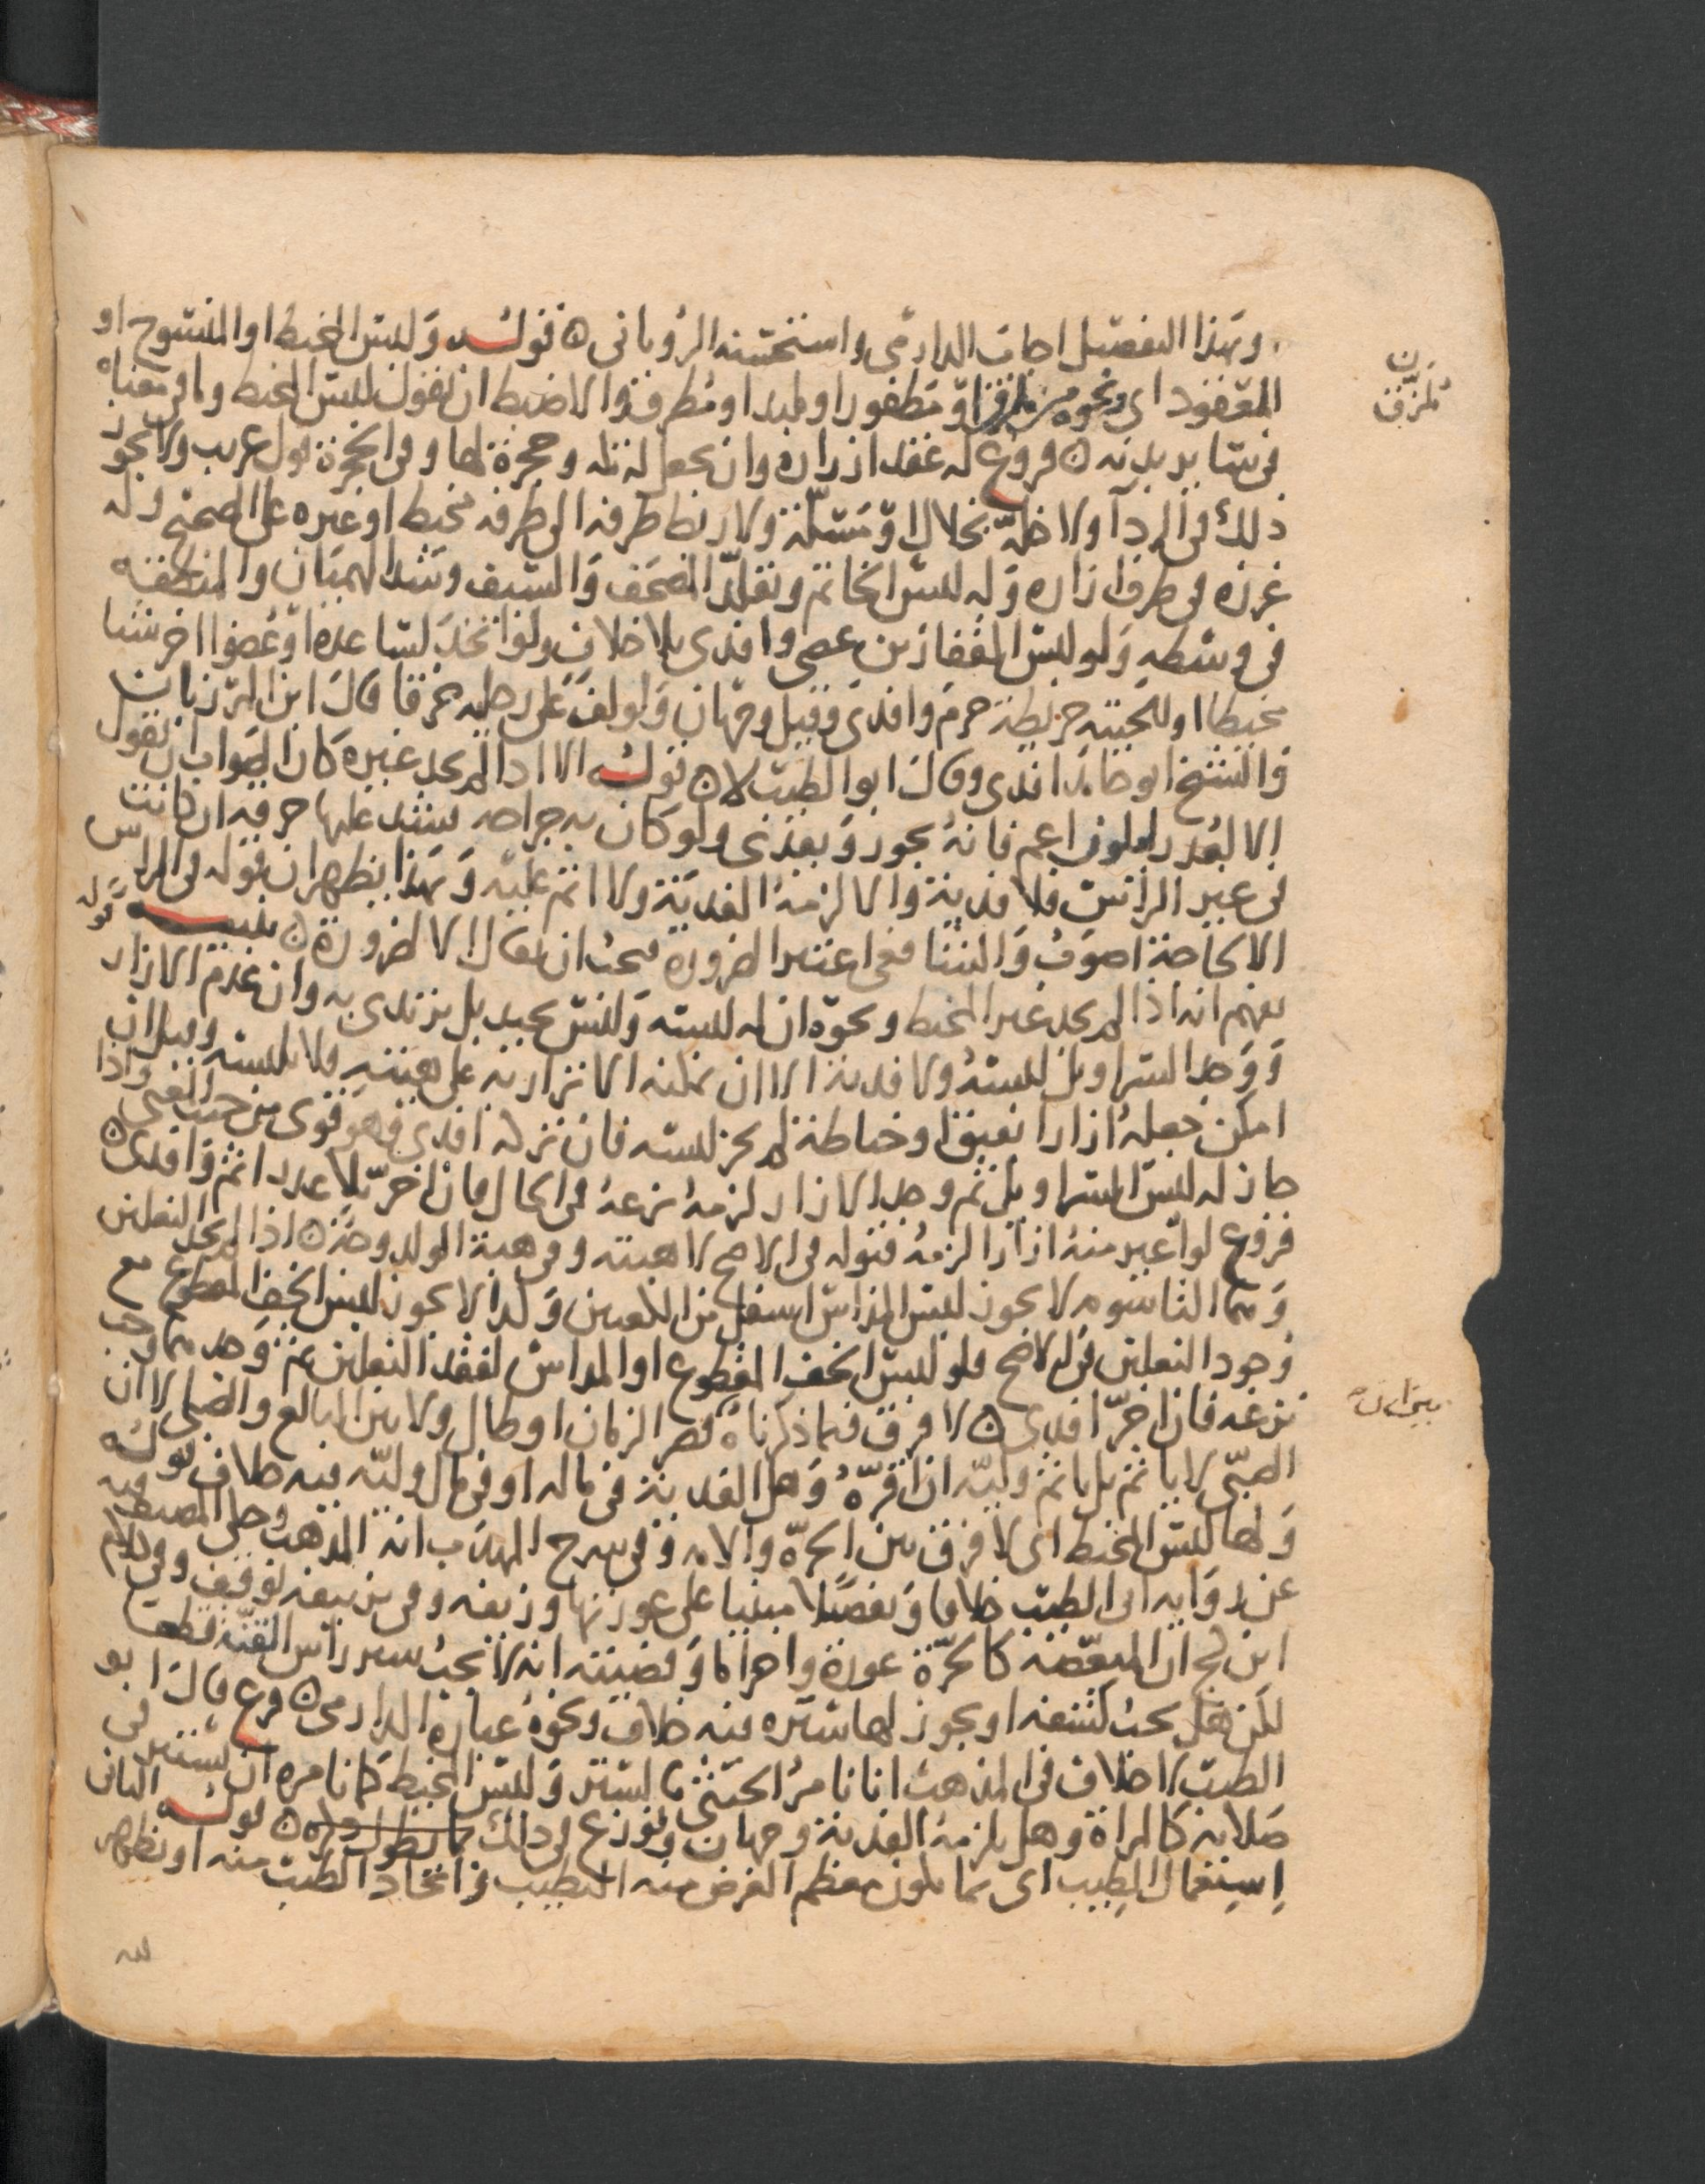 وبهذا التفصيل اجاب الدارمي واستحسنه الروياني ٥ قوله ولبس المخيط او المنسوج او
المعقود اى ونحوه من ملزق او مظفور او ملبد او مطرق والاضبط ان نقول لبس المخيط وما فى معناه
فى سائر بدنه ٥ فروع له عقد ازاره وان يجعل له تكة وحجزة لها وفى الحجزة قول غريب ولا يجوز
ذلك فى الردآ ولا خله بخلال او مسلة ولا ربط طرفه الى طرفه بخيط او غيره على الصحيح وله
غرزه فى طرف ازاره وله لبس الخاتم وتقلد المصحف والسيف وشد الهميان والمنطقه
فى وسطه ولو لبس القفازين عصى وافتدى بلا خلاف ولو اتخذ لساعده او عضوا اخر شيا
مخيطا او للحيته خريطة حرم وافتدى وقيل وجهان ولو لف على رجليه خرقا قال ابن المرزبان
والشيخ ابو حامد افتدى وقال ابو الطيب لا ٥ قوله الا اذا لم يجد غيره كان الصواب ان نقول
الا لعذر اعم فانه يجوز ويفتدى ولو كان به جراحه فشد عليها خرقه ان كانت
فى غير الراس فلا فدية والا لزمه الفدية ولا اثم عليه وبهذا يظهر ان قوله فى الراس
الا لحاجة اصوب والبنا فعى اعتبر الضرورة فيجب ان يقال الا لضرورة ٥ تنبيه قوله
يفهم انه اذا لم يجد غير المخيط ونحوه ان له لبسه وليس بجيد بل يرتدى به وان عدم الازار
ووجد السراويل لبسه ولا فدية الا ان يمكنه الاتزار به على هيئته فلا يلبسه وقيل ان
امكن جعله ازارا بفتق او خياطة لم يجز لبسه فان تركه افتدى وهو قوى من حيث المعنى واذا
جاز له لبس السراويل ثم وجد الازار لزمه نزعه فى الحال فان اخر بلا عذر اثم وافتدى ٥
فروع لو اعير منه ازارا لزمه قبوله فى الاصح لا هبته وفى هبة الولد وجه ٥ اذا لم يجد النعلين
ومنها التاسومه لا يجوز لبس المداس اسفل من الكعبين وكذا لا يجوز لبس الخف المقطوع مع
وجود النعلين فى الاصح فلو لبس الخف المقطوع او المداس لفقد النعلين ثم وجدهما وجب
نزعه فان اخر افتدى ٥ لا فرق فيما ذكرناه قصر الزمان او طال ولا بين البالغ والصبى الا ان
الصبى لا ياثم بل ياثم وليه ان اقره وهل الفدية فى ماله او فى مال وليه فيه خلاف قوله
ولها لبس المخيط اى لا فرق بين الحرة والامه وفى شرح المهذب انه المذهب وحكى المصنف فيه
عن رواية ابى الطيب خلافا وتفصيلا مبنيا على عورتها وزيفه وفى تزييفه توقف وفى كلام
ابن كج ان المبعضه كالحرة عورة واحراما وقضيته انه لا يجب ستر راس القنة قطعا
لكن هل يجب كشفه او يجوز لها ستره فيه خلاف ونحوه عبارة الدارمى ٥ فرع قال ابو
الطيب لا خلاف فى المذهب انا نامر الخنثى بالستر ولبس المخيط كما نامره ان يستتر فى
صلاته كالمراة وهل يلزمه الفدية وجهان ونوزع فى ذلك بما يطول ذكره ٥ قوله الثانى
استعمال الطيب اى بما يكون معظم الغرض منه التطيب واتخاذ الطيب منه او يظهر
ملزق